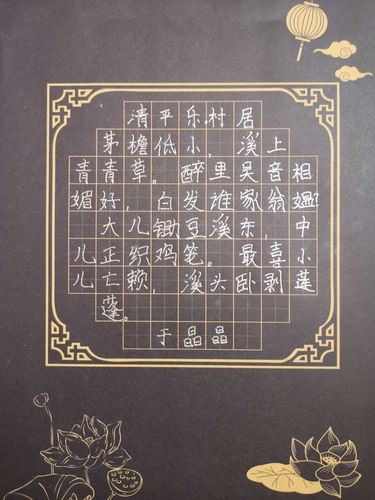 清平乐村居
茅檐低小 溪上
青青草。醉里吴音相
媚好，白发谁家翁媪?
大儿锄豆溪东，中
儿正织鸡笼。最喜小
儿亡赖，溪头卧剥莲
蓬。
于晶晶